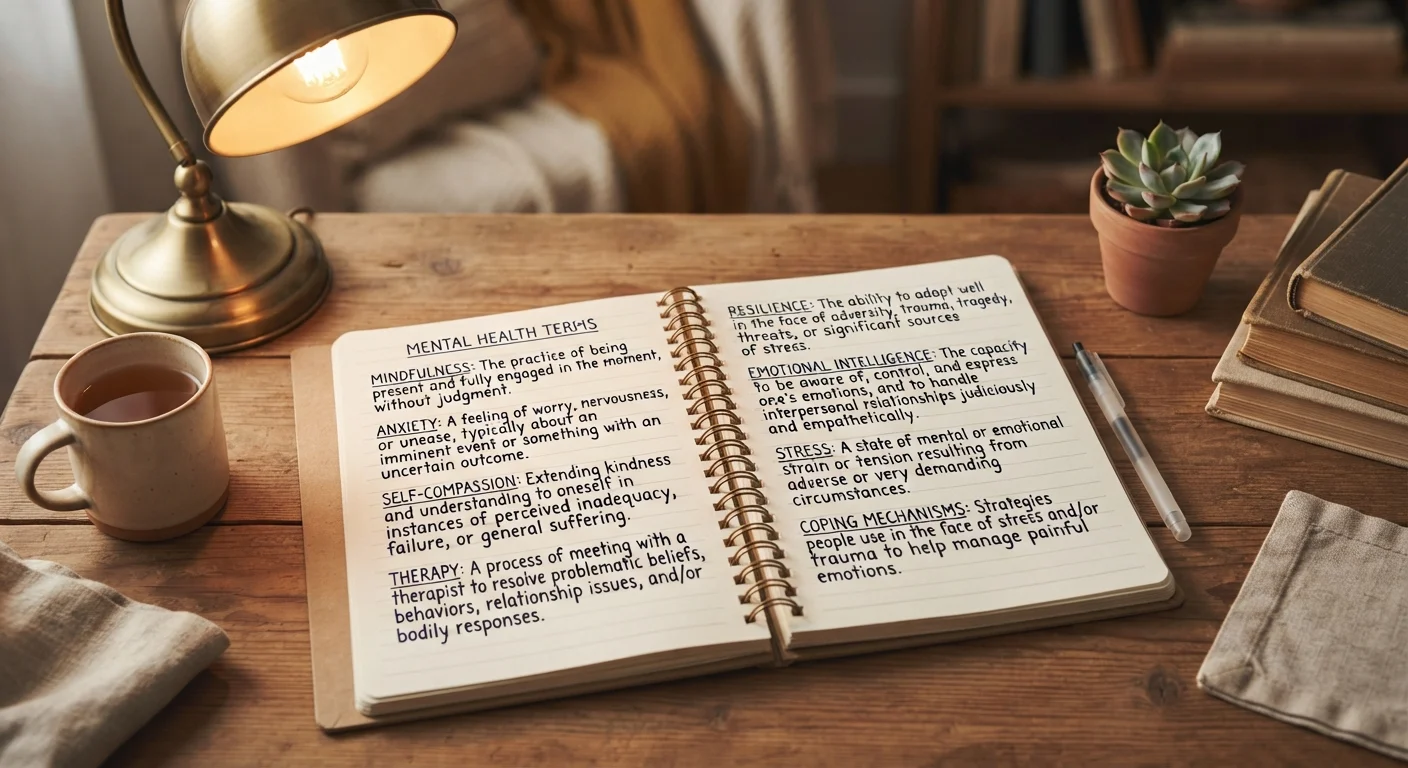 MENTAL HEALTH TERMS
MINDFULNESS: The practice of being
present and fully engaged in the moment,
without judgment.
ANXIETY: A feeling of worry, nervousness,
or unease, typically about an
imminent event or something with an
uncertain outcome.
SELF-COMPASSION: Extending kindness
and understanding to oneself in
instances of perceived inadequacy,
failure, or general suffering.
THERAPY: A process of meeting with a
therapist to resolve problematic beliefs,
behaviors, relationship issues, and/or
bodily responses.
RESILIENCE: The ability to adapt well
in the face of adversity, trauma, tragedy,
threats, or significant sources
of stress.
EMOTIONAL INTELLIGENCE: The capacity
to be aware of, control, and express
one's emotions, and to handle
interpersonal relationships judiciously
and empathetically.
STRESS: A state of mental or emotional
strain or tension resulting from
adverse or very demanding
circumstances.
COPING MECHANISMS: Strategies
people use in the face of stress and/or
trauma to help manage painful
emotions.